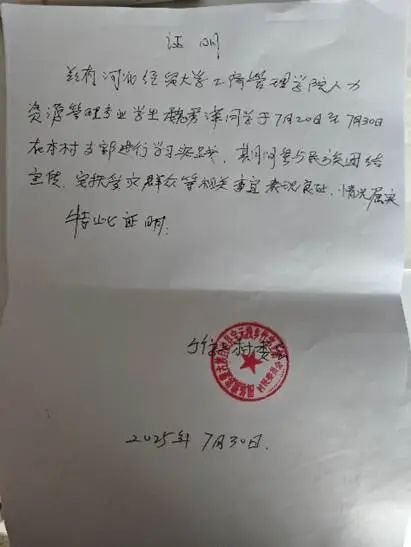 证明
兹有河北经贸大学工商管理学院人力
资源管理专业学生魏 洋同学于7月20日至7月30日
在本村支部进行学习实践,其间参与民族团结
宣传、受灾群众等相关事宜表现良好,情况属实
特此证明.
村委
2025年7月30日.